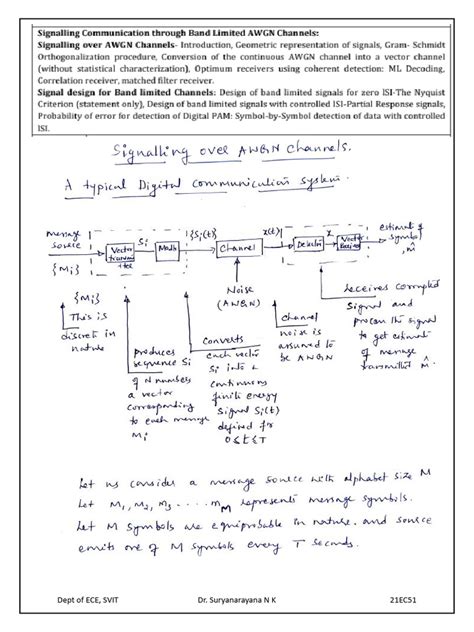 Signalling Communication through Band Limited AWGN Channels:
Signalling over AWGN Channels- Introduction, Geometric representation of signals, Gram- Schmidt
Orthogonalization procedure, Conversion of the continuous AWGN channel into a vector channel
(without statistical characterization), Optimum receivers using coherent detection: ML Decoding,
Correlation receiver, matched filter receiver.
Signal design for Band limited Channels: Design of band limited signals for zero ISI-The Nyquist
Criterion (statement only), Design of band limited signals with controlled ISI-Partial Response signals,
Probability of error for detection of Digital PAM: Symbol-by-Symbol detection of data with controlled
ISI.
Signalling over AWGN Channels.
A typical Digital communication system.
message source {Mi}
Vector transmitter
Si
Modlr
{Si(t)}
Channel
x(t)
Detector
x
Vector
estimate of symbol, m̂
Noise (AWGN)
{Mi}
This is
discrete in
nature
produces
sequence Si
of N numbers
a vector
corresponding
to each message
Mi
Converts
each vector
Si into a
continuous
finite energy
Signal Si(t)
defined for
0≤t≤T
channel
noise is
assumed to
be AWGN
receives corrupted
Signal and
process the signal
to get estimate
of message
transmitted m̂
Let us consider a message source with alphabet size M
Let M1, M2, M3 ..... mM represents message symbols.
Let M symbols are equiprobable in nature. and source
emits one of M symbols every T seconds.
Dept of ECE, SVIT
Dr. Suryanarayana N K
21EC51